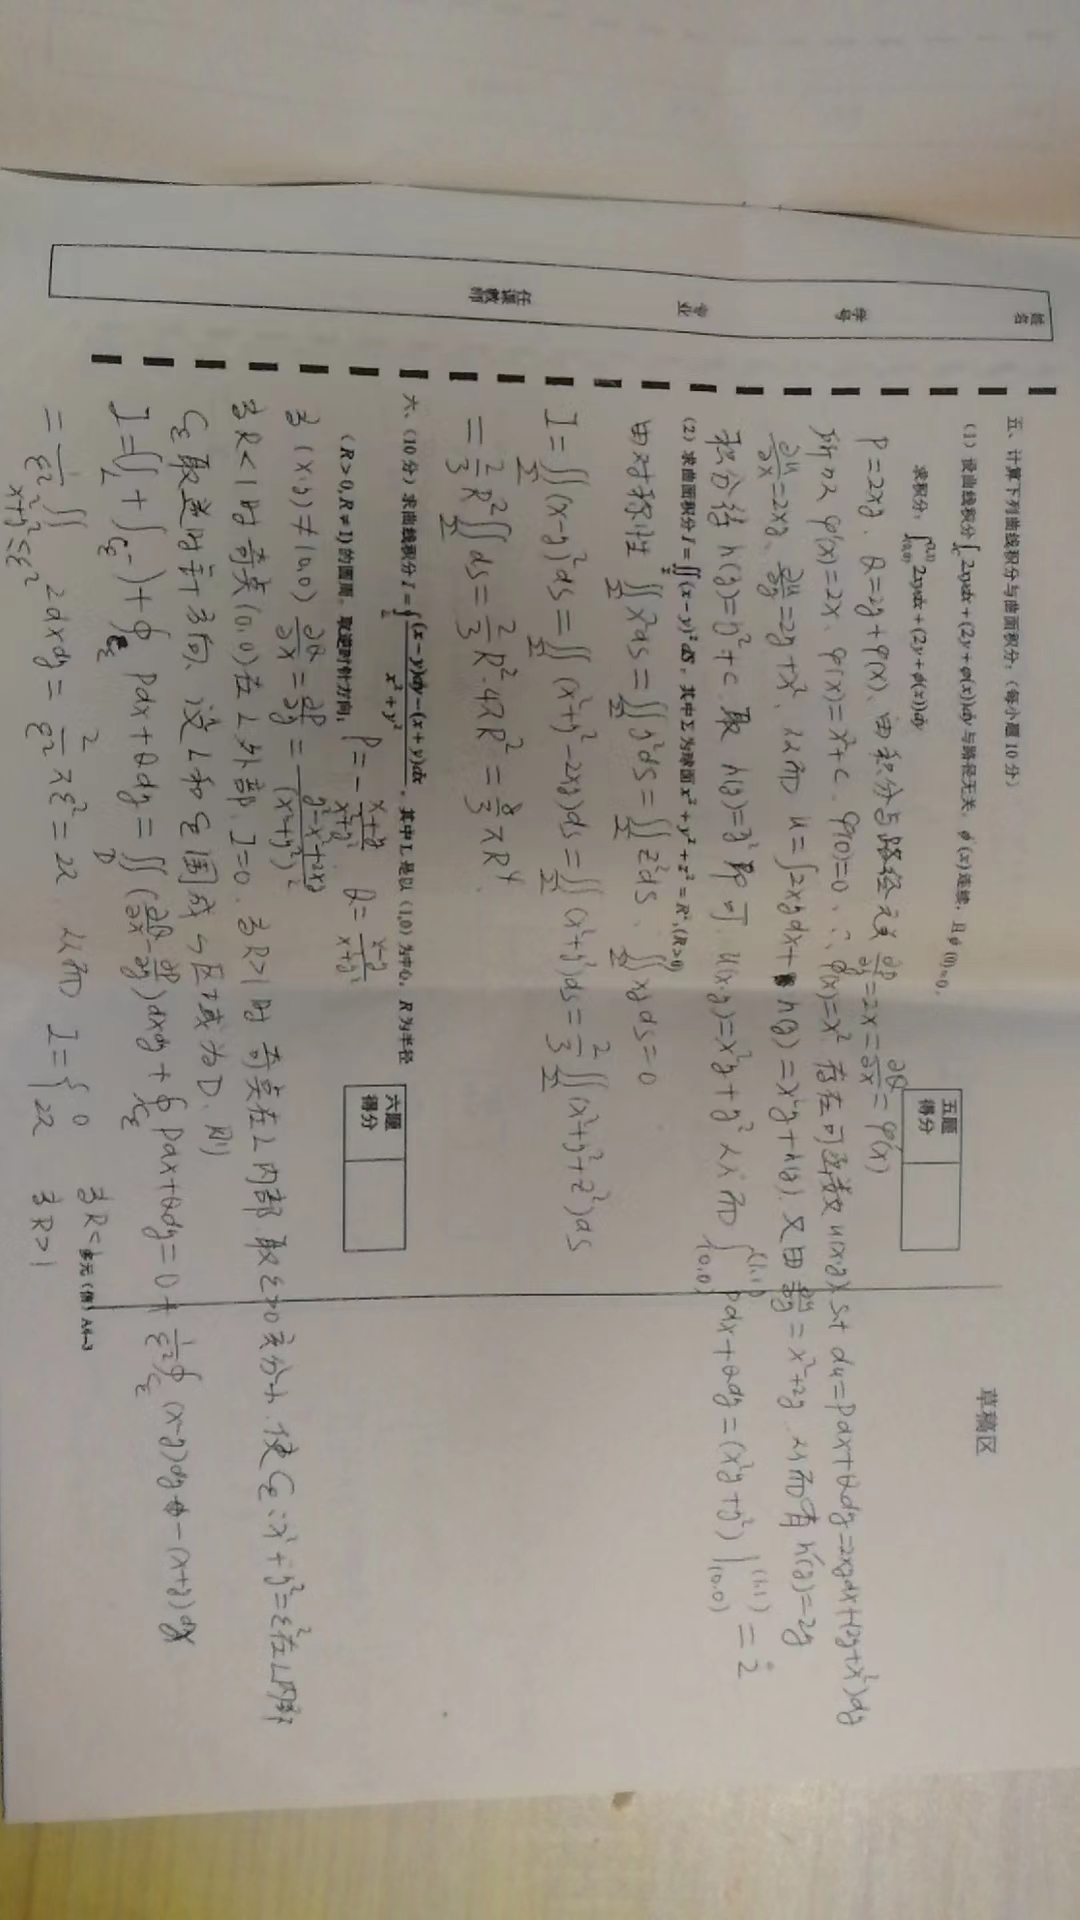 姓名
学号
专业
任课教师
五、计算下列曲线积分与曲面积分：（每小题 10 分）
五题
得分
草稿区
（1）设曲线积分∫_C 2xydx+(2y+φ(x))dy 与路径无关，φ(x)连续，且φ(0)=0，
求积分：∫_{(0,0)}^{(1,1)} 2xydx+(2y+φ(x))dy
P=2xy. Q=2y+φ(x)、由积分与路径无关 ∂P/∂y=2x=∂Q/∂x=φ'(x)
所以 φ'(x)=2x. φ(x)=x²+c. φ(0)=0. ∴ φ(x)=x². 存在可函数 u(x,y) st du=Pdx+Qdy=2xydx+(2y+x²)dy
∂u/∂x=2xy、∂u/∂y=2y+x²、从而 u=∫2xydx+h(y)=x²y+h(y). 又由 ∂u/∂y=x²+2y. 从而有 h'(y)=2y
积分得 h(y)=y²+c. 取 h(y)=y² 即可. u(x,y)=x²y+y² 从而 ∫_{(0,0)}^{(1,1)} Pdx+Qdy=(x²y+y²)|_{(0,0)}^{(1,1)}=2
（2）求曲面积分 I=∬_Σ (x-y)²dS，其中Σ为球面 x²+y²+z²=R²,(R>0)
由对称性 ∬_Σ x²ds=∬_Σ y²ds=∬_Σ z²ds、∬_Σ xyds=0
I=∬_Σ (x-y)²ds=∬_Σ (x²+y²-2xy)ds=∬_Σ (x²+y²)ds=2/3∬_Σ (x²+y²+z²)ds
=2/3R²∬_Σ ds=2/3R²·4πR²=8/3πR⁴.
六、（10 分）求曲线积分 I=∮_L ((x-y)dy-(x+y)dx)/(x²+y²)，其中 L 是以 (1,0) 为中心，R 为半径
六题
得分
（R>0,R≠1）的圆周，取逆时针方向。 P=-(x+y)/(x²+y²). Q=(x-y)/(x²+y²)
当 (x,y)≠(0,0) ∂Q/∂x=∂P/∂y=(y²-x²+2xy)/(x²+y²)²
当R<1时 奇点(0,0)在L外部. I=0. 当R>1时 奇点在L内部 取ε>0充分小. 使Cε:x²+y²=ε²在L内部
Cε取逆时针方向、设L和Cε围成的区域为D. 则
I=(∫_L+∫_{Cε⁻})+∮_{Cε} Pdx+Qdy=∬_D (∂Q/∂x-∂P/∂y)dxdy+∮_{Cε} Pdx+Qdy=0+1/ε²∮_{Cε} (x-y)dy-(x+y)dx
=1/ε²∬_{x²+y²≤ε²} 2dxdy=2/ε² πε²=2π 从而 I={ 0 当R<1
2π 当R>1
多元（信）A4-3